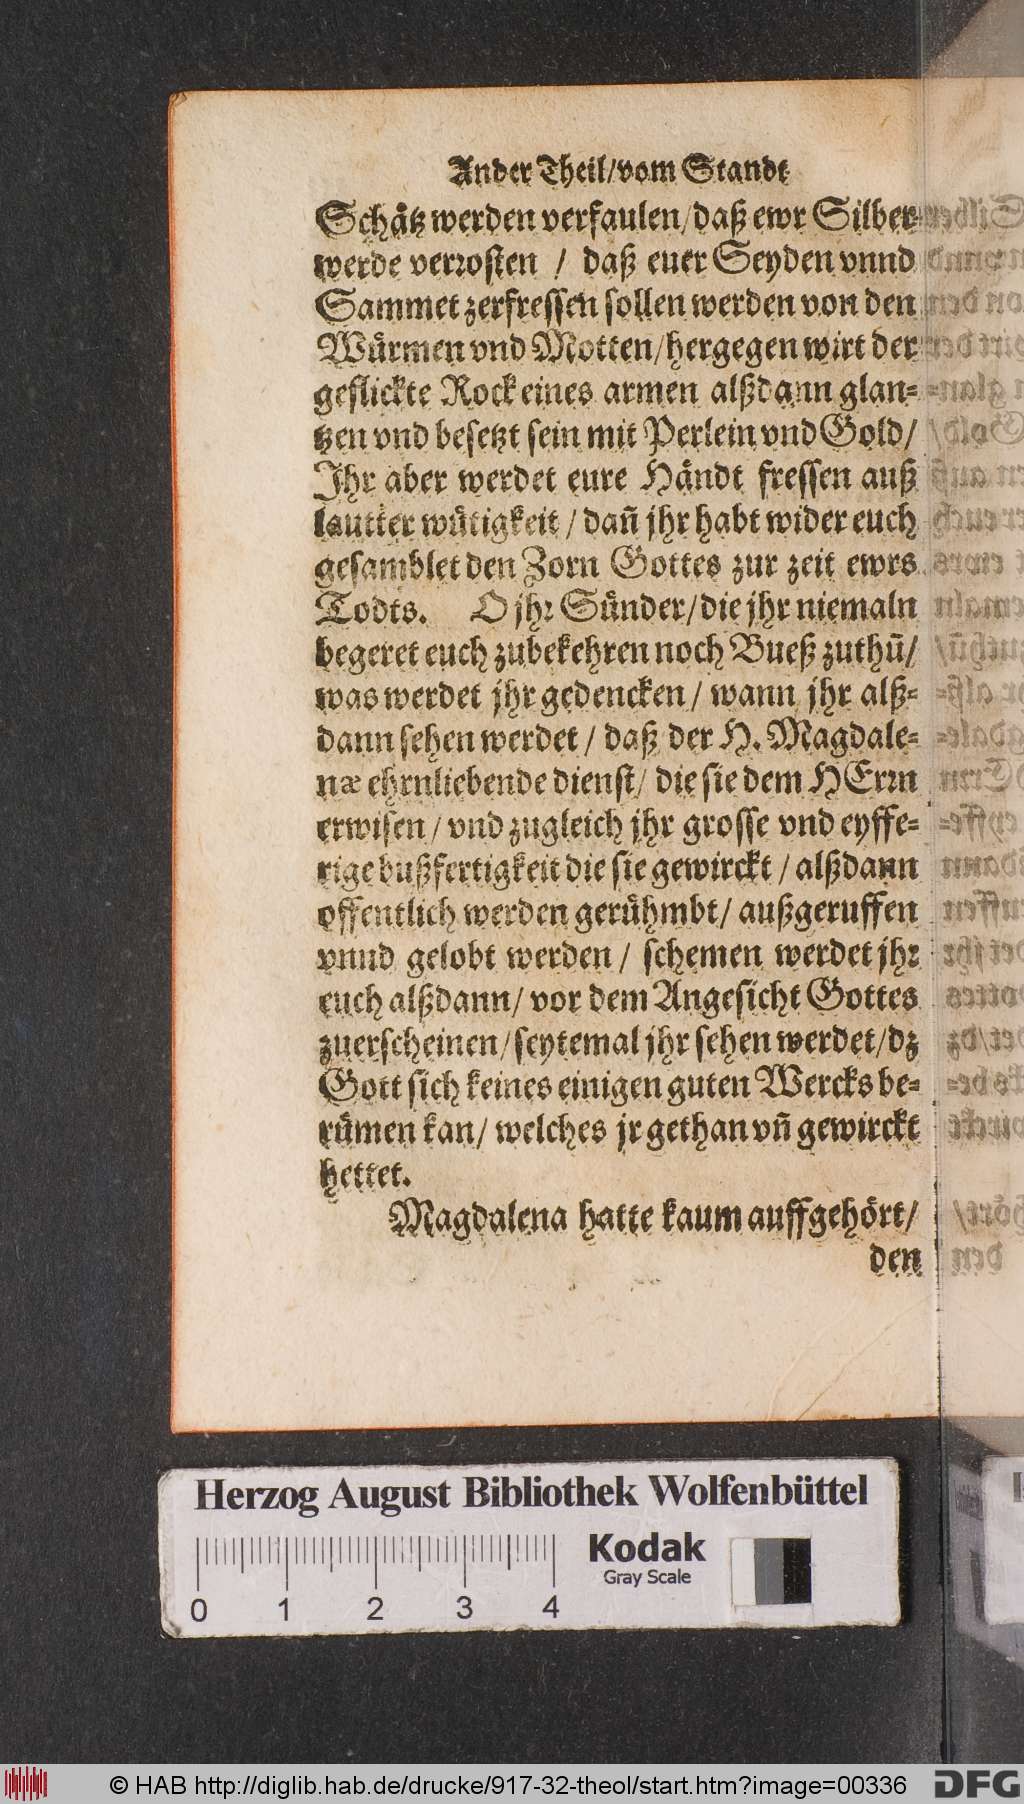 Ander Theil/vom Standt
Schätz werden verfaulen/daß ewr Silber
werde verrosten / daß euer Seyden vnnd
Sammet zerfressen sollen werden von den
Würmen vnd Motten/hergegen wirt der
geflickte Rock eines armen alßdann glan-
tzen vnd besetzt sein mit Perlein vnd Gold/
Jhr aber werdet eure Händt fressen auß
lautter wütigkeit / dan̄ jhr habt wider euch
gesamblet den Zorn Gottes zur zeit ewrs
Todts. O jhr Sünder/die jhr niemaln
begeret euch zubekehren noch Bueß zuthū/
was werdet jhr gedencken / wann jhr alß-
dann sehen werdet / daß der H. Magdale-
næ ehrnliebende dienst/ die sie dem HErrn
erwisen / vnd zugleich jhr grosse vnd eyffe-
rige bußfertigkeit die sie gewirckt / alßdann
offentlich werden gerühmbt/ außgeruffen
vnnd gelobt werden / schemen werdet jhr
euch alßdann/ vor dem Angesicht Gottes
zuerscheinen/seytemal jhr sehen werdet/dz
Gott sich keines einigen guten Wercks be-
rümen kan/ welches jr gethan vn̄ gewirckt
hettet.
Magdalena hatte kaum auffgehört/
den
Herzog August Bibliothek Wolfenbüttel
Kodak
Gray Scale
0 1 2 3 4
© HAB http://diglib.hab.de/drucke/917-32-theol/start.htm?image=00336
DFG